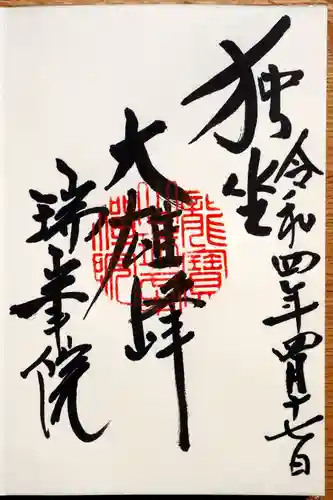 独坐
令和四年四月十七日
大雄峰
瑞峯院